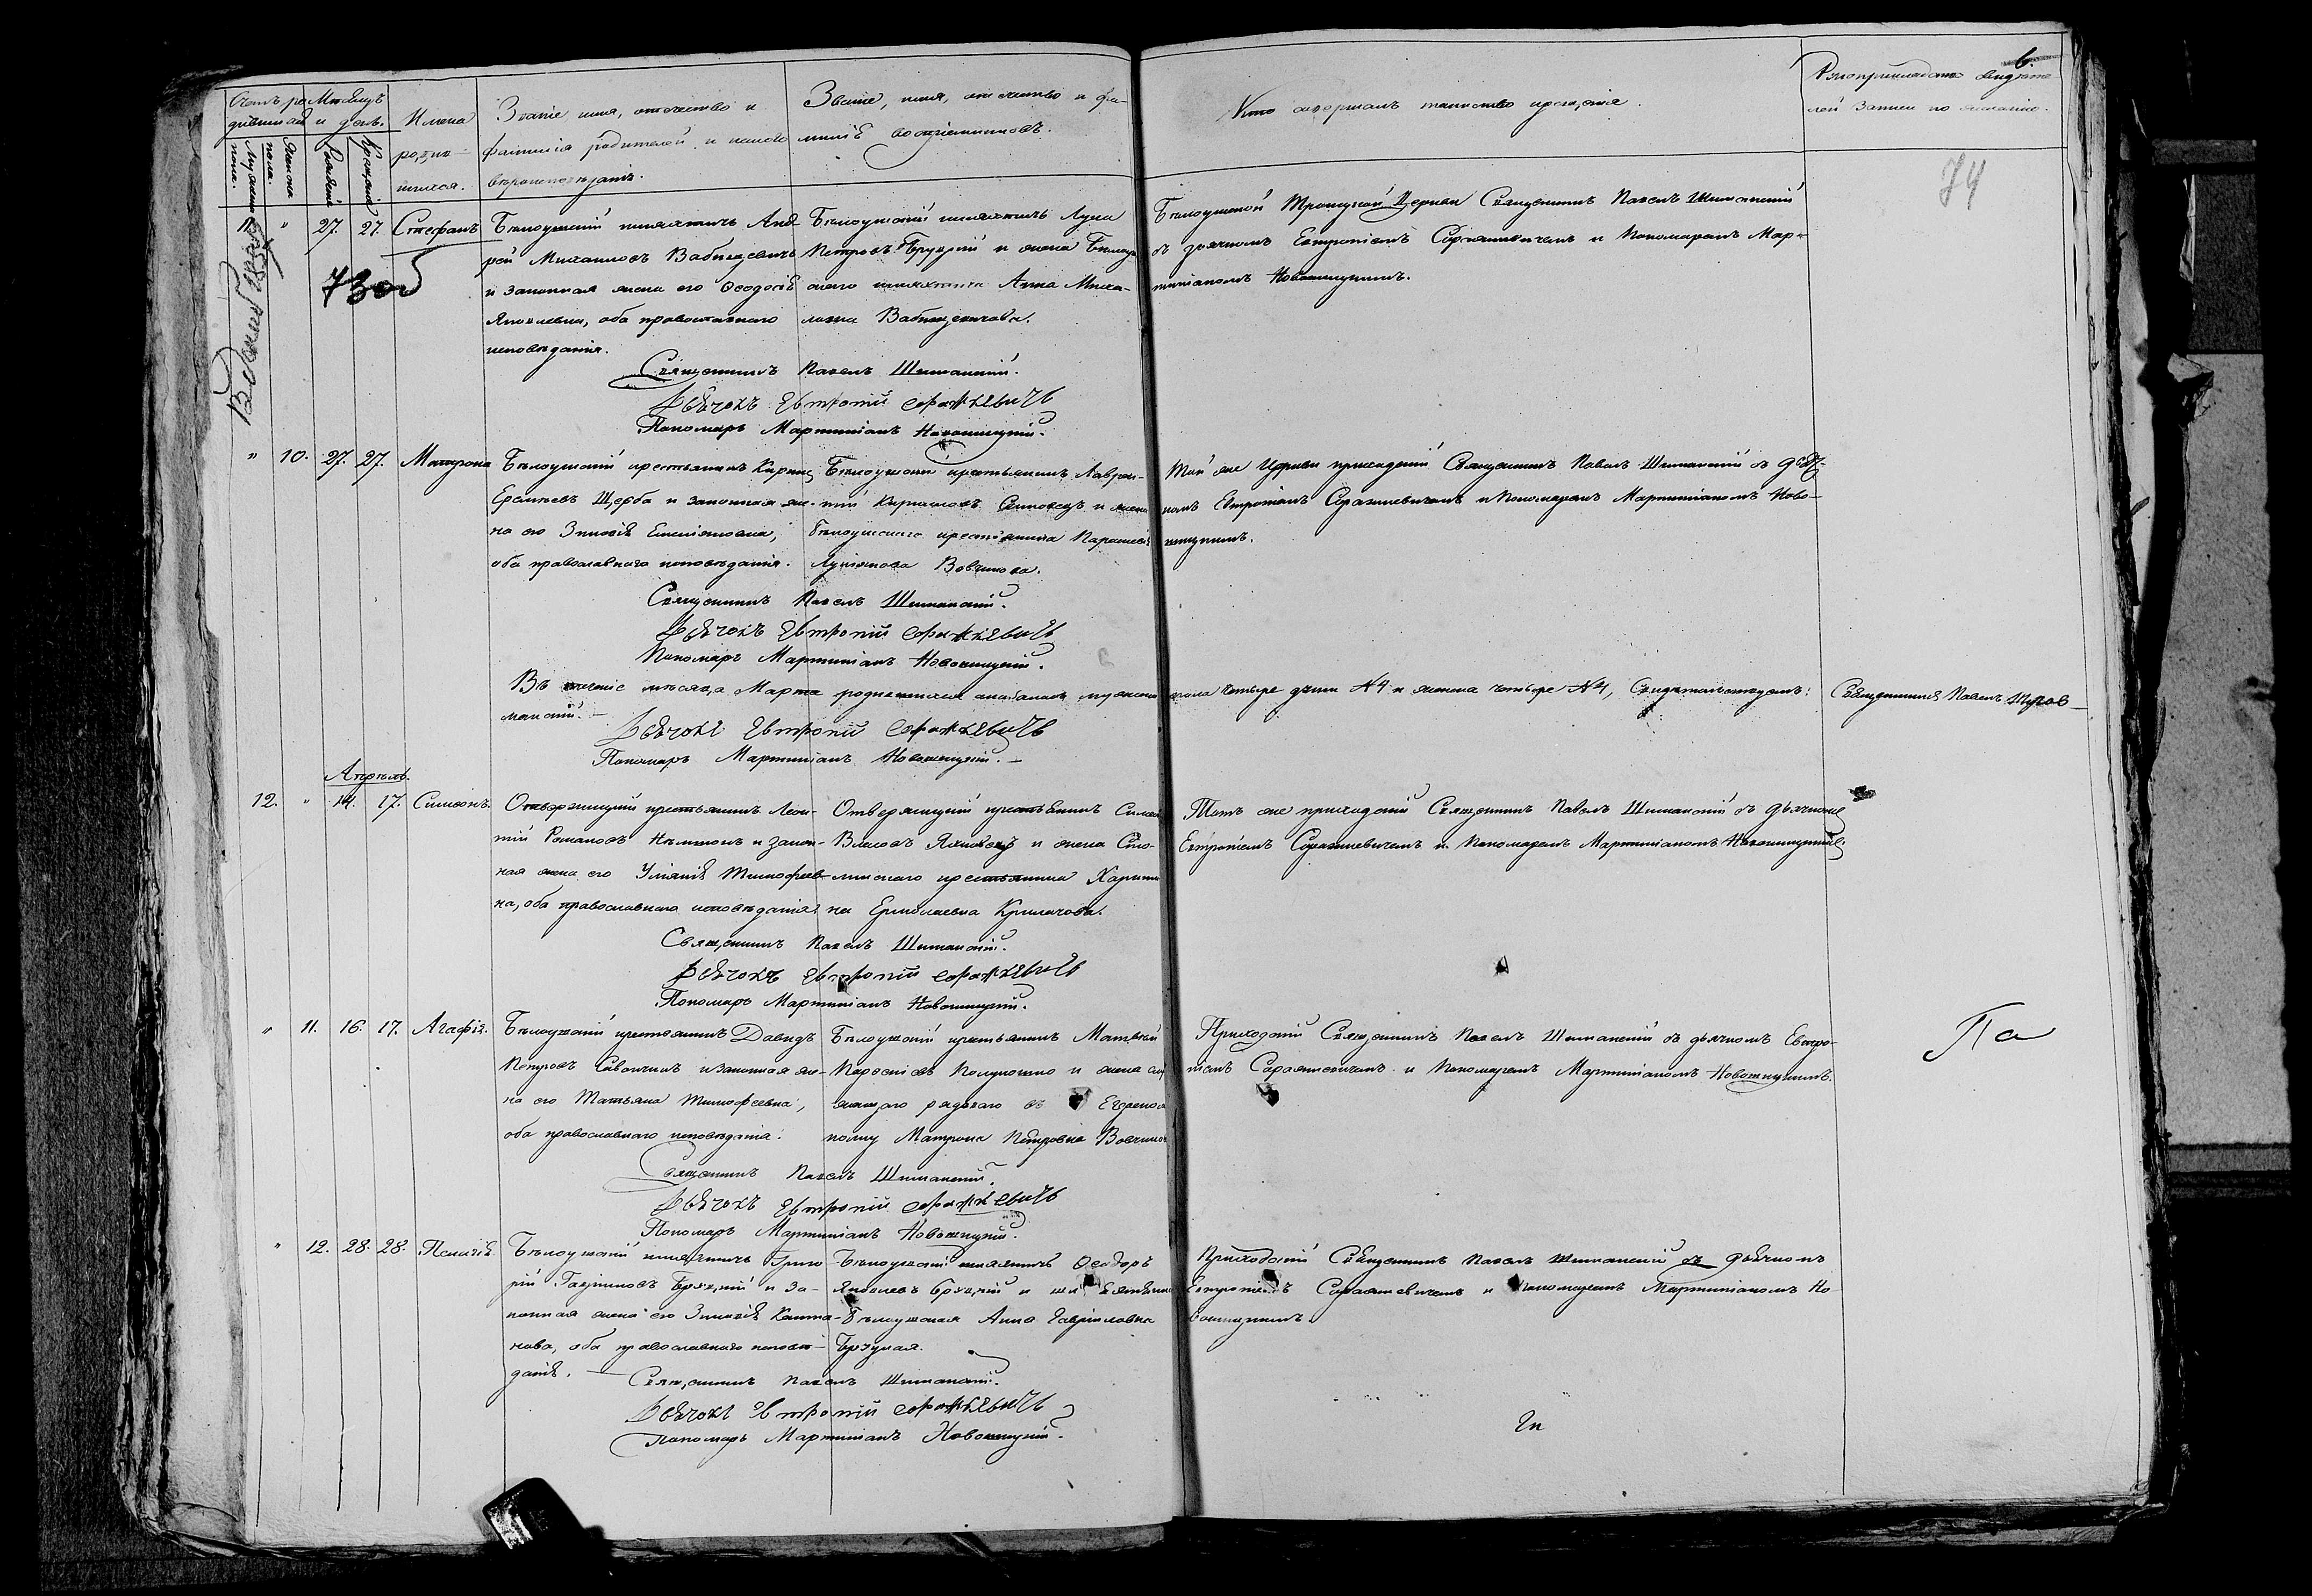 6.
74
Счетъ ро
дившихся
Мѣсяцъ
и день.
Мужеска
пола.
Женска
пола.
Рожденія
Крещенія
Имена
родив-
шихся.
Званіе имя, отечество и
фамилія родителей и какого
вѣроисповѣданія.
Званіе, имя, отечество и фа-
милія воспріемниковъ.
Кто совершалъ таинство крещенія.
Рукоприкладство свидѣте-
лей записи по желанію.
11. " 27. 27. Стефанъ
730
Бѣлоушскій шляхтичъ Анд-
рей Михаиловъ Вабищевичъ
и законная жена его Ѳеодосія
Яковлевна, оба православнаго
исповѣданія.
Бѣлоушскій шляхтичъ Лука
Петровъ Бруцкій и жена Бѣлоу
скаго шляхтича Анна Миха-
лова Вабищевичова.
Бѣлоушской Троицкой Церкви Священникъ Павелъ Шиманскій
съ дьячкомъ Евтропіемъ Соражкевичемъ и Пономаремъ Мар-
тиніаномъ Новошицкимъ.
Священникъ Павелъ Шиманскій.
Дьячокъ Евтропій Соражкевичъ
Пономаръ Мартиніанъ Новошицкій.
" 10. 27. 27. Матрона
Бѣлоушскій крестьянинъ Карпъ
Еремѣевъ Щерба и законная же-
на его Зиновія Емельяновна,
оба православнаго исповѣданія.
Бѣлоушскій крестьянинъ Лаврен-
тій Кириловъ и жена
бѣлоушскаго крестьянина Параскевія
Лукіянова Вовчикова.
Той же Церкви приходскій Священникъ Павелъ Шиманскій съ дьяч-
комъ Евтропіемъ Соражкевичемъ и Пономаремъ Мартиніаномъ Ново-
шицкимъ.
Священникъ Павелъ Шиманскій.
Дьячокъ Евтропій Соражкевичъ
Пономаръ Мартиніанъ Новошицкій.
Въ теченіе мѣсяца Марта родившихся оказалось мужеска пола четыре души №4 и женска четыре №4, Свидѣтельствуемъ: Священникъ Павелъ
манскій.
Дьячокъ Евтропій Соражкевичъ
Пономаръ Мартиніанъ Новошицкій.
Апрѣль.
12. " 14. 17. Симеонъ.
Отвержицкій крестьянинъ Леон-
тій Романовъ и закон-
ная жена его Уліянія Тимофеев-
на, оба православнаго исповѣданія.
Отвержицкій крестьянинъ Симеонъ
Власовъ и жена Сто-
линскаго крестьянина Харити-
на Ермолаевна Криличова.
Тотъ же приходскій Священникъ Павелъ Шиманскій съ дьячкомъ
Евтропіемъ Соражкевичемъ и Пономаремъ Мартиніаномъ Новошицкимъ.
Священникъ Павелъ Шиманскій.
Дьячокъ Евтропій Соражкевичъ
Пономаръ Мартиніанъ Новошицкій.
" 11. 16. 17. Агафія.
Бѣлоушскій крестьянинъ Давидъ
Петровъ и законная же-
на его Татьяна Тимофеевна,
оба православнаго исповѣданія.
Бѣлоушскій крестьянинъ Матвѣй
и жена слу
жащаго рядоваго въ Егерском
полку Матрона Петровна
Приходскій Священникъ Павелъ Шиманскій съ дьячкомъ Евтро-
піемъ Соражкевичемъ и Пономаремъ Мартиніаномъ Новошицкимъ.
Па
Священникъ Павелъ Шиманскій.
Дьячокъ Евтропій Соражкевичъ
Пономаръ Мартиніанъ Новошицкій.
" 12. 28. 28. Пелагія.
Бѣлоушскій шляхтичъ Григо
рій Бруцкій и за-
конная жена его Зиновія
оба православнаго исповѣ-
данія.
Бѣлоушскій шляхтичъ Ѳеодоръ
Яковлевъ Бруцкій и
Бѣлоушская Анна Гавриловна
Бруцкая.
Приходскій Священникъ Павелъ Шиманскій съ дьячкомъ
Евтропіемъ Соражкевичемъ и Пономаремъ Мартиніаномъ Но-
вошицкимъ.
Священникъ Павелъ Шиманскій.
Дьячокъ Евтропій Соражкевичъ
Пономаръ Мартиніанъ Новошицкій.